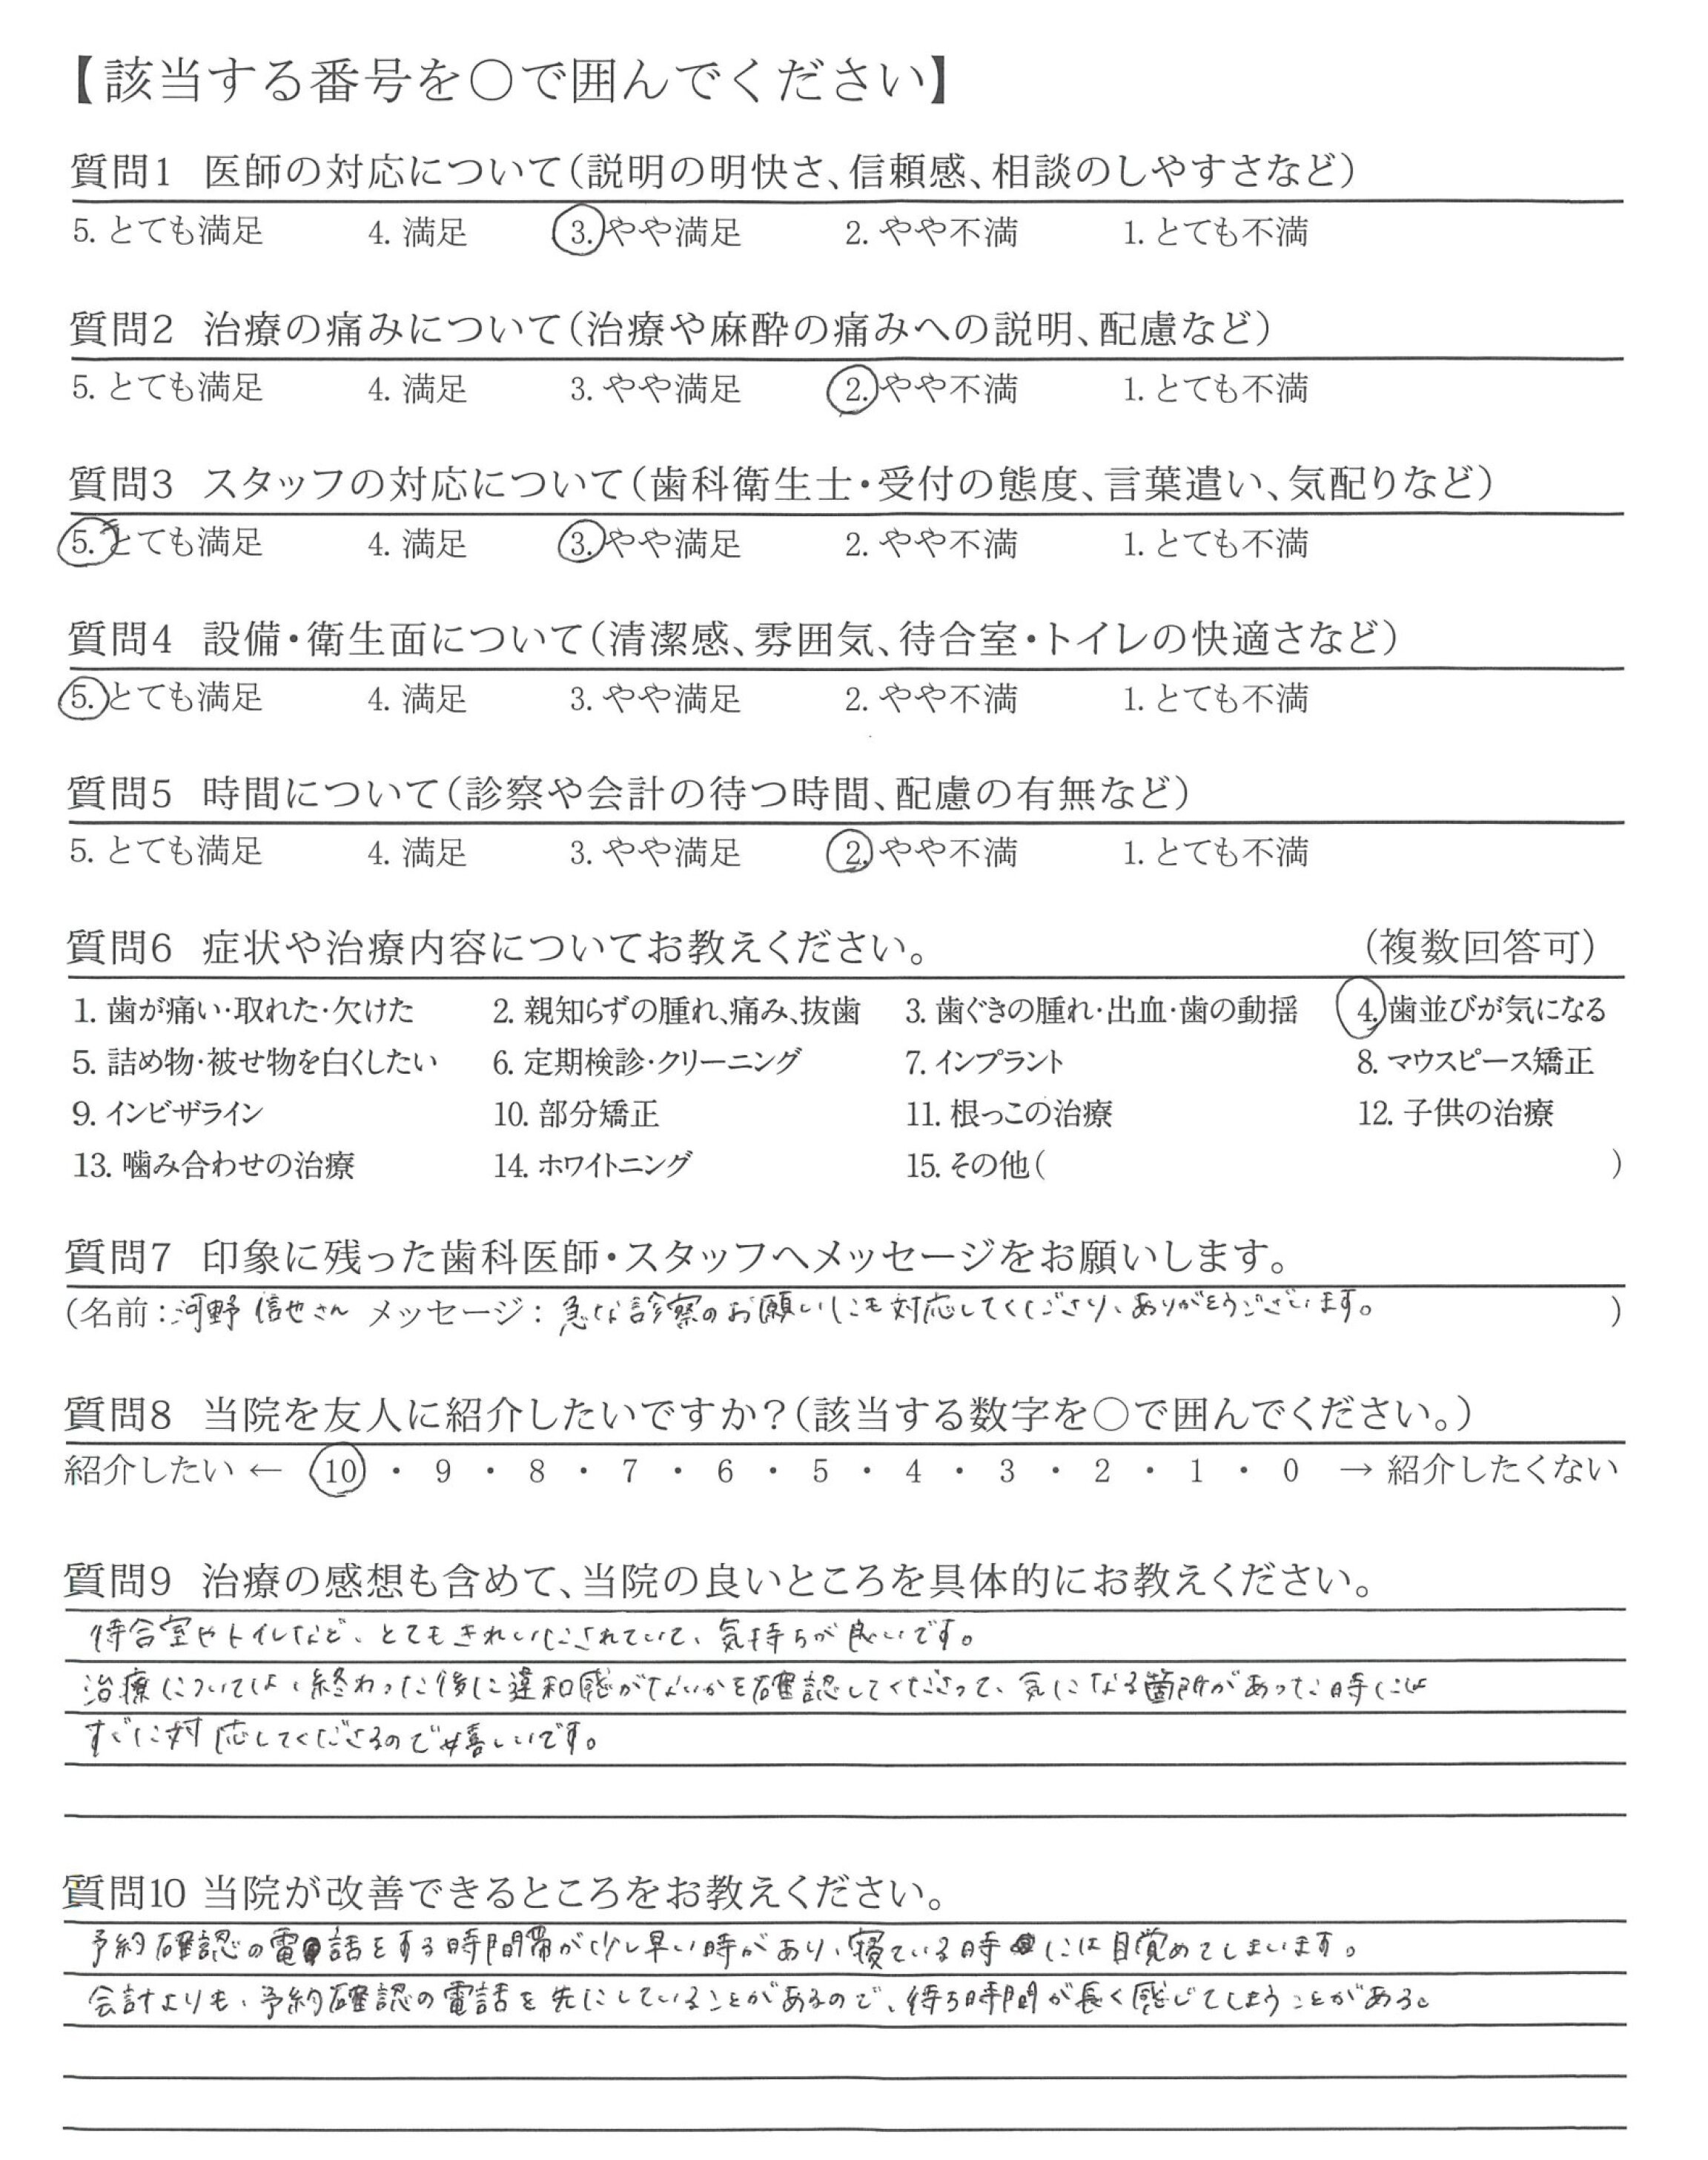 【該当する番号を○で囲んでください】
質問1 医師の対応について(説明の明快さ、信頼感、相談のしやすさなど)
5. とても満足 4. 満足 3. やや満足 2. やや不満 1. とても不満
質問2 治療の痛みについて(治療や麻酔の痛みへの説明、配慮など)
5. とても満足 4. 満足 3. やや満足 2. やや不満 1. とても不満
質問3 スタッフの対応について(歯科衛生士・受付の態度、言葉遣い、気配りなど)
5. とても満足 4. 満足 3. やや満足 2. やや不満 1. とても不満
質問4 設備・衛生面について(清潔感、雰囲気、待合室・トイレの快適さなど)
5. とても満足 4. 満足 3. やや満足 2. やや不満 1. とても不満
質問5 時間について(診察や会計の待つ時間、配慮の有無など)
5. とても満足 4. 満足 3. やや満足 2. やや不満 1. とても不満
質問6 症状や治療内容についてお教えください。 (複数回答可)
1. 歯が痛い・取れた・欠けた 2. 親知らずの腫れ、痛み、抜歯 3. 歯ぐきの腫れ・出血・歯の動揺 4. 歯並びが気になる
5. 詰め物・被せ物を白くしたい 6. 定期検診・クリーニング 7. インプラント 8. マウスピース矯正
9. インビザライン 10. 部分矯正 11. 根っこの治療 12. 子供の治療
13. 噛み合わせの治療 14. ホワイトニング 15. その他( )
質問7 印象に残った歯科医師・スタッフへメッセージをお願いします。
(名前:河野 信也さん メッセージ: 急な診察のお願いにも対応してくださり、ありがとうございます。 )
質問8 当院を友人に紹介したいですか?(該当する数字を○で囲んでください。)
紹介したい ← 10 ・ 9 ・ 8 ・ 7 ・ 6 ・ 5 ・ 4 ・ 3 ・ 2 ・ 1 ・ 0 → 紹介したくない
質問9 治療の感想も含めて、当院の良いところを具体的にお教えください。
待合室やトイレなど、とてもきれいにされていて、気持ちが良いです。
治療については、終わった後に違和感がないかを確認してくださって、気になる箇所があった時には
すぐに対応してくださるので嬉しいです。
質問10 当院が改善できるところをお教えください。
予約確認の電話をする時間帯が少し早い時があり、寝ている時には目覚めてしまいます。
会計よりも、予約確認の電話を先にしていることがあるので、待ち時間が長く感じてしまうことがある。